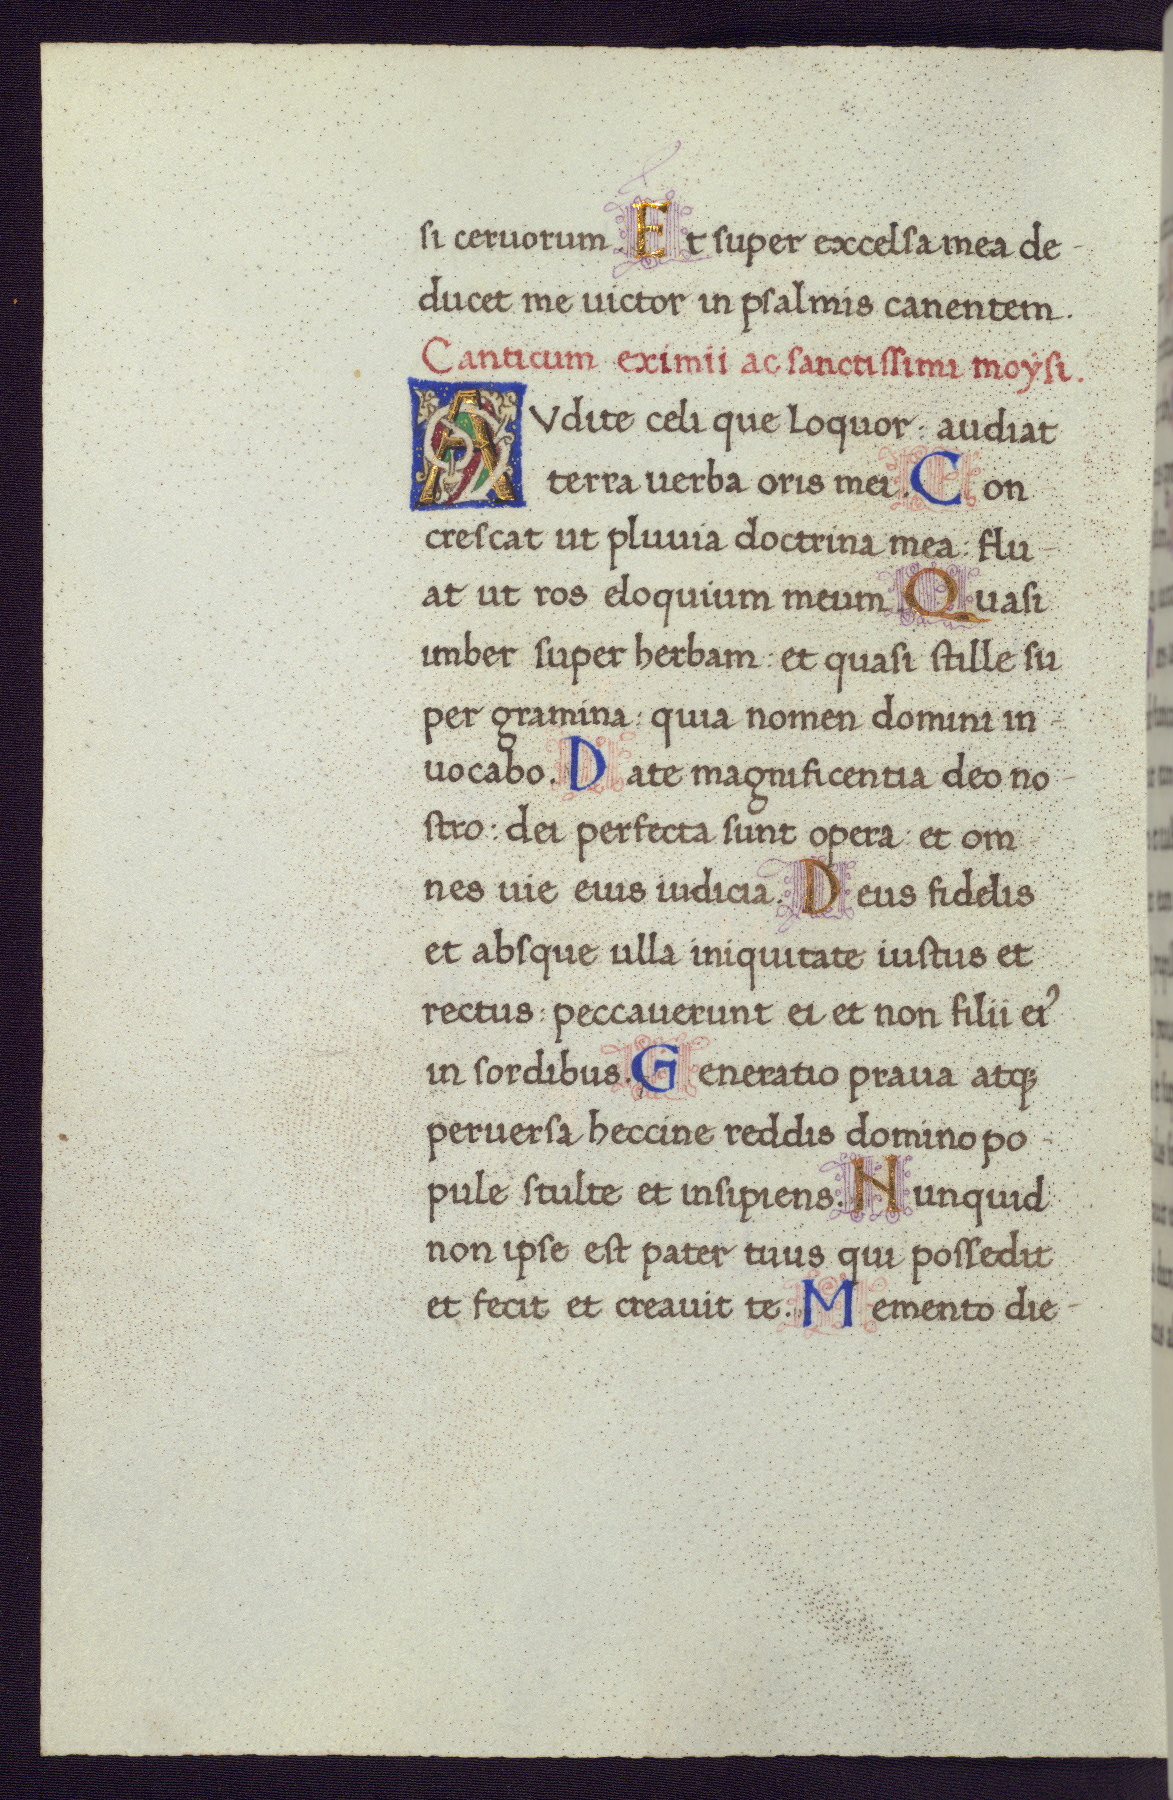 si ceruorum. Et super excelsa mea de-
ducet me uictor in psalmis canentem.
Canticum eximii ac sanctissimi moÿsi.
AVdite celi que loquor: audiat
terra uerba oris mei. Con
crescat ut pluuia doctrina mea: flu-
at ut ros eloquium meum. Quasi
imber super herbam: et quasi stille su
per gramina: quia nomen domini in-
uocabo. Date magnificentia deo no-
stro: dei perfecta sunt opera: et om
nes uie eius iudicia. Deus fidelis
et absque ulla iniquitate iustus et
rectus: peccauerunt ei et non filii ei᾿
in sordibus. Generatio praua atqꝫ
peruersa heccine reddis domino po-
pule stulte et insipiens. Nunquid
non ipse est pater tuus qui possedit
et fecit et creauit te. Memento die-